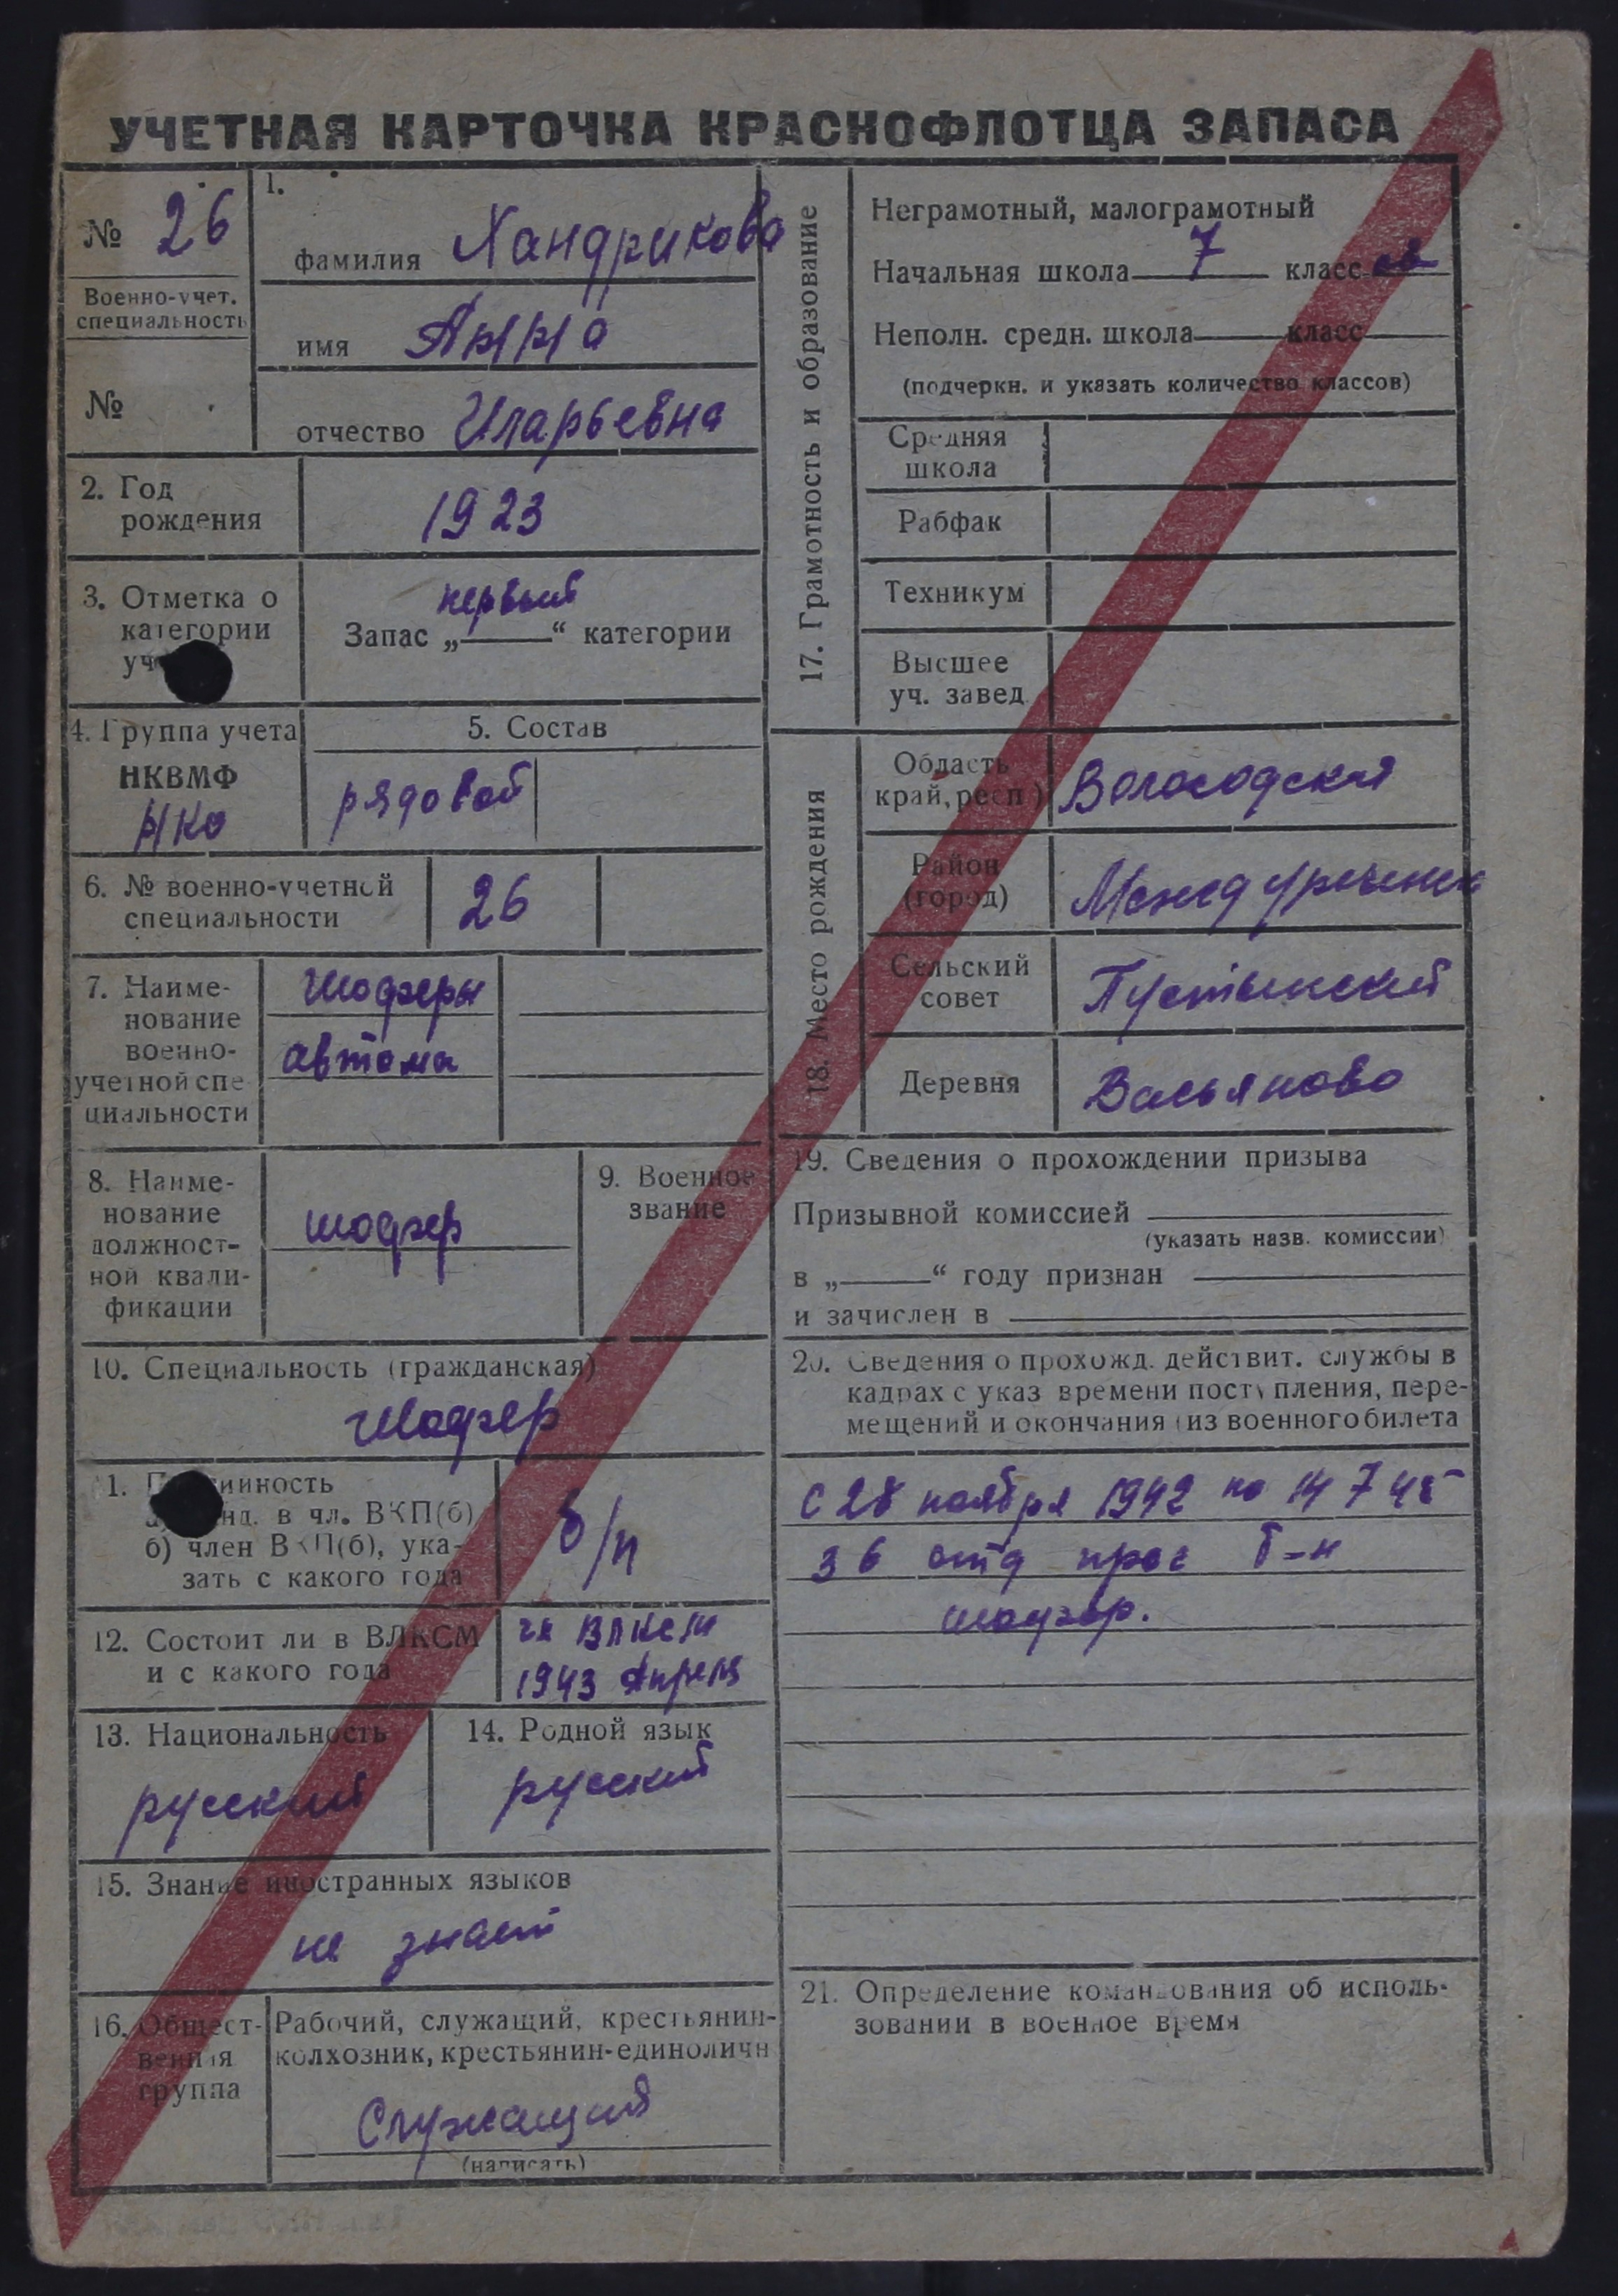 УЧЕТНАЯ КАРТОЧКА КРАСНОФЛОТЦА ЗАПАСА
№ 26
Военно-учет.
специальность
№
1.
фамилия Хандрикова
имя Анна
отчество Иларьевна
2. Год
рождения
1923
3. Отметка о
категории
уч
первый
Запас „ “ категории
4. Группа учета
НКВМФ
НКО
5. Состав
рядовой
6. № военно-учетной
специальности
26
7. Наиме-
нование
военно-
учетной спе
циальности
Шофера
автома
8. Наиме-
нование
должност-
ной квали-
фикации
шофер
9. Военное
звание
10. Специальность (гражданская)
Шофер
11. П ийность
а) нд. в чл. ВКП(б)
б) член ВКП(б), ука-
зать с какого года
б/п
12. Состоит ли в ВЛКСМ
и с какого года
чл ВЛКСМ
1943 Апреля
13. Национальность
русский
14. Родной язык
русский
15. Знание иностранных языков
не знает
16. Общест-
венная
группа
Рабочий, служащий, крестьянин-
колхозник, крестьянин-единоличн
Служащий
(написать)
17. Грамотность и образование
Неграмотный, малограмотный
Начальная школа 7 класс ов
Неполн. средн. школа класс
(подчеркн. и указать количество классов)
Средняя
школа
Рабфак
Техникум
Высшее
уч. завед.
18. Место рождения
Область
край, респ)
Вологодская
Район
(город)
Междуреченск
Сельский
совет
Пустынский
Деревня
Васьяново
19. Сведения о прохождении призыва
Призывной комиссией
(указать назв. комиссии)
в „ “ году признан
и зачислен в
20. Сведения о прохожд. действит. службы в
кадрах с указ времени поступления, пере-
мещений и окончания (из военного билета
с 28 ноября 1942 по 14 7 45
36 отд прог б-н
шофер.
21. Определение командования об исполь-
зовании в военное время